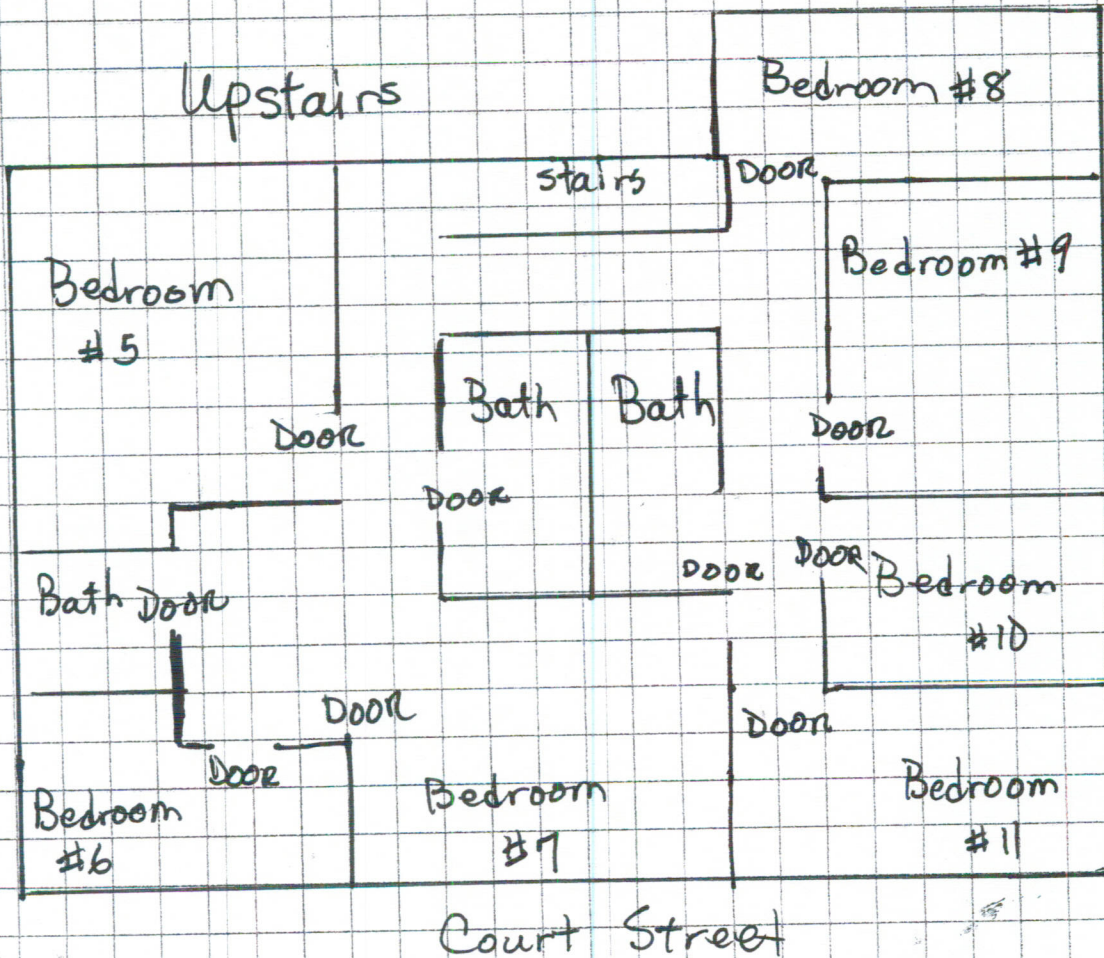 Upstairs
Bedroom #8
stairs
DOOR
Bedroom #9
Bedroom
#5
Bath
Bath
DOOR
DOOR
DOOR
DOOR
DOOR
Bedroom
#10
Bath DOOR
DOOR
DOOR
DOOR
Bedroom
#6
Bedroom
#7
Bedroom
#11
Court Street